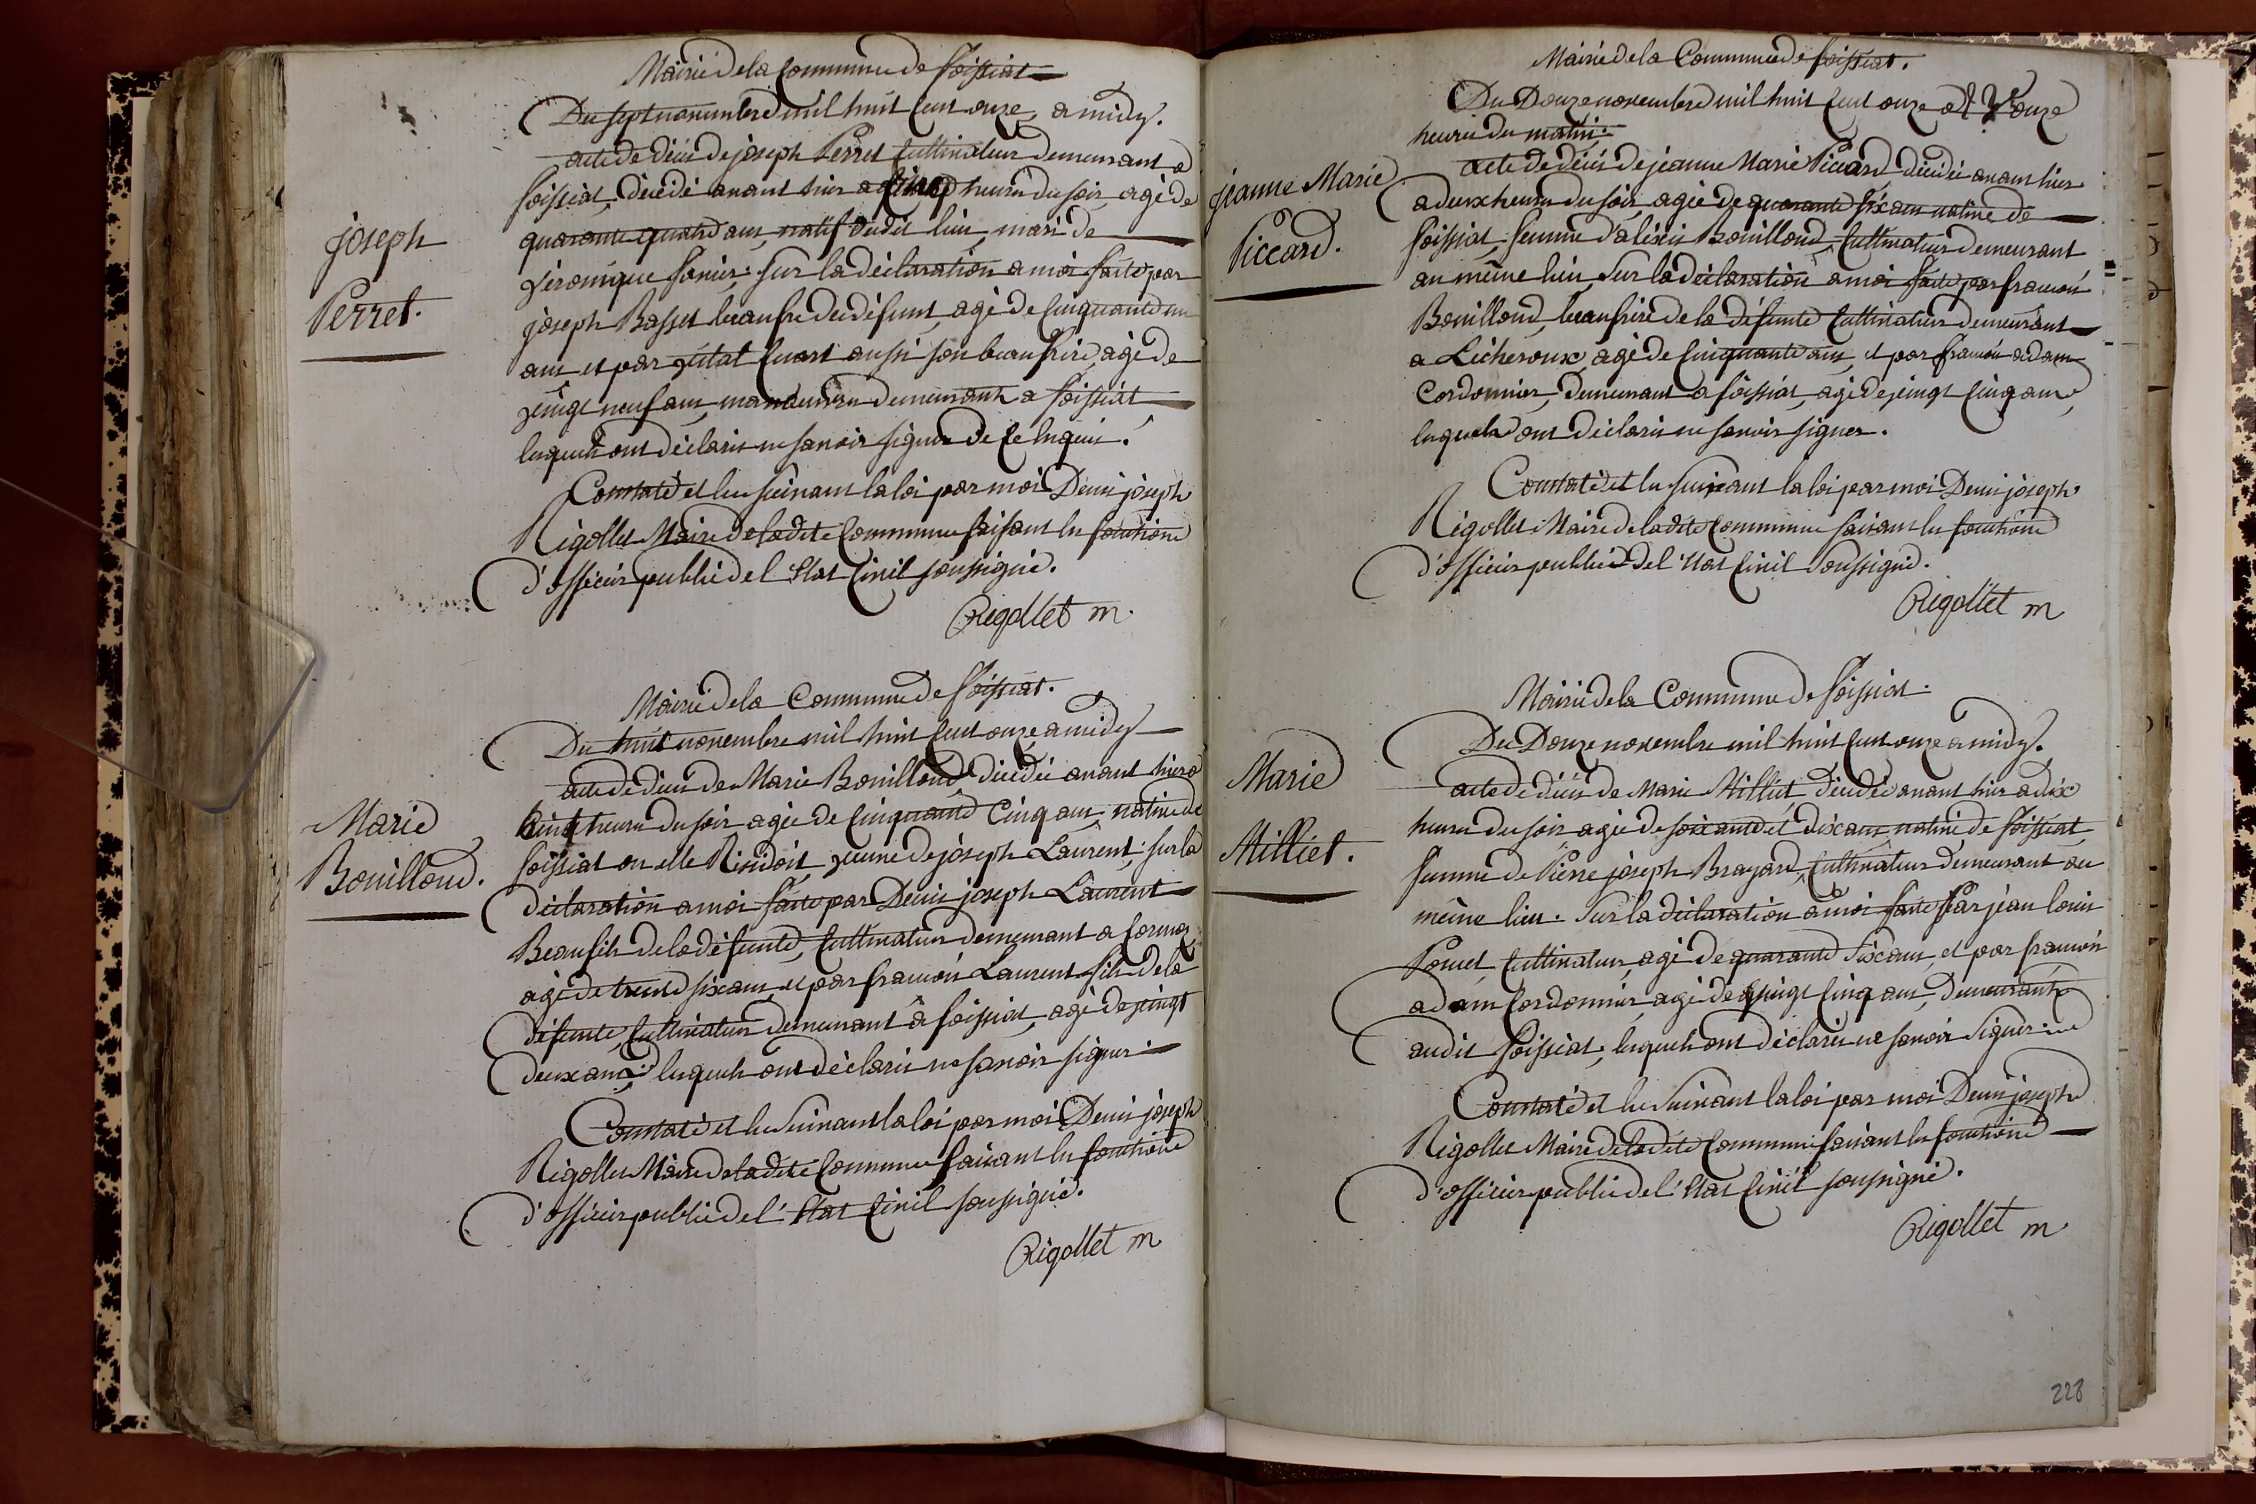 Mairie de la Commune de foissiat
Du sept novembre mil huit cent onze, a midy.
acte de décès de joseph Perret cultivateur demeurant a
foissiat, décédé avant hier a cinq heures du soir, agé de
quarante quatre ans, natif dudit lieu, mari de
véronique sur la déclaration a moi faite par
joseph Basset beaufre du défunt, agé de cinquante un
ans et par vital aussi son beaufrere, agé de
vingt neuf ans, manoeuvres demeurants a foissiat
lesquels ont déclarés ne savoir signer de ce enquis.
Constaté et lu suivant la loi par moi Denis joseph
Rigollet Maire de ladite Commune faisant les fonctions
d'officier public de l'Etat Civil soussigné.
Rigollet m
joseph
Perret.
Mairie de la Commune de foissiat.
Du huit novembre mil huit cent onze a midy
acte de décès de Marie Bouilloud, décédée avant hier a
heures du soir agée de cinquante Cinq ans, native de
foissiat ou elle Résidoit, veuve de joseph Laurent, sur la
déclaration a moi faite par Denis joseph Laurent
Beaufils de la défunte, cultivateur demeurant a cormoz
agé de trente six ans, et par francois Laurent fils de la
défunte, cultivateur demeurant a foissiat, agé de vingt
deux ans, lesquels ont déclarés ne savoir signer.
Constaté et lu suivant la loi par moi Denis joseph
Rigollet Maire de ladite Commune faisant les fonctions
d'officier public de l'Etat Civil soussigné.
Rigollet m
Marie
Bouilloud.
Mairie de la Commune de foissiat.
Du Douze novembre mil huit cent onze onze
heures du matin.
acte de décès de jeanne Marie Piccard décédée avant hier
a deux heures du soir, agée de quarante six ans native de
foissiat, femme d'aléxis Bouilloud, cultivateur demeurant
au même lieu, sur la déclaration a moi faite par francois
Bouilloud, beaufrère de la défunte cultivateur demeurant
a Lécheroux, agé de cinquante ans, et par francois adam
Cordonnier, demeurant a foissiat, agé de vingt cinq ans,
lesquels ont déclarés ne savoir signer.
Constaté et lu suivant la loi par moi Denis joseph
Rigollet Maire de ladite Commune faisant les fonctions
d'officier public de l'Etat Civil soussigné.
Rigollet m
jeanne Marie
Piccard.
Mairie de la Commune de foissiat.
Du Douze novembre mil huit cent onze a midy.
acte de décès de Marie Milliet décédée avant hier a dix
heures du soir agée de soixante et dix ans, native de foissiat
femme de Pierre joseph Brayard, cultivateur demeurant au
même lieu. Sur la déclaration a moi faite par jean louis
Pouet, cultivateur, agé de quarante six ans, et par francois
adam cordonnier, agé de vingt cinq ans, demeurants
audit foissiat, lesquels ont déclarés ne savoir signer.
Constaté et lu suivant la loi par moi Denis joseph
Rigollet Maire de ladite Commune faisant les fonctions
d'officier public de l'Etat Civil soussigné.
Rigollet m
Marie
Milliet.
228